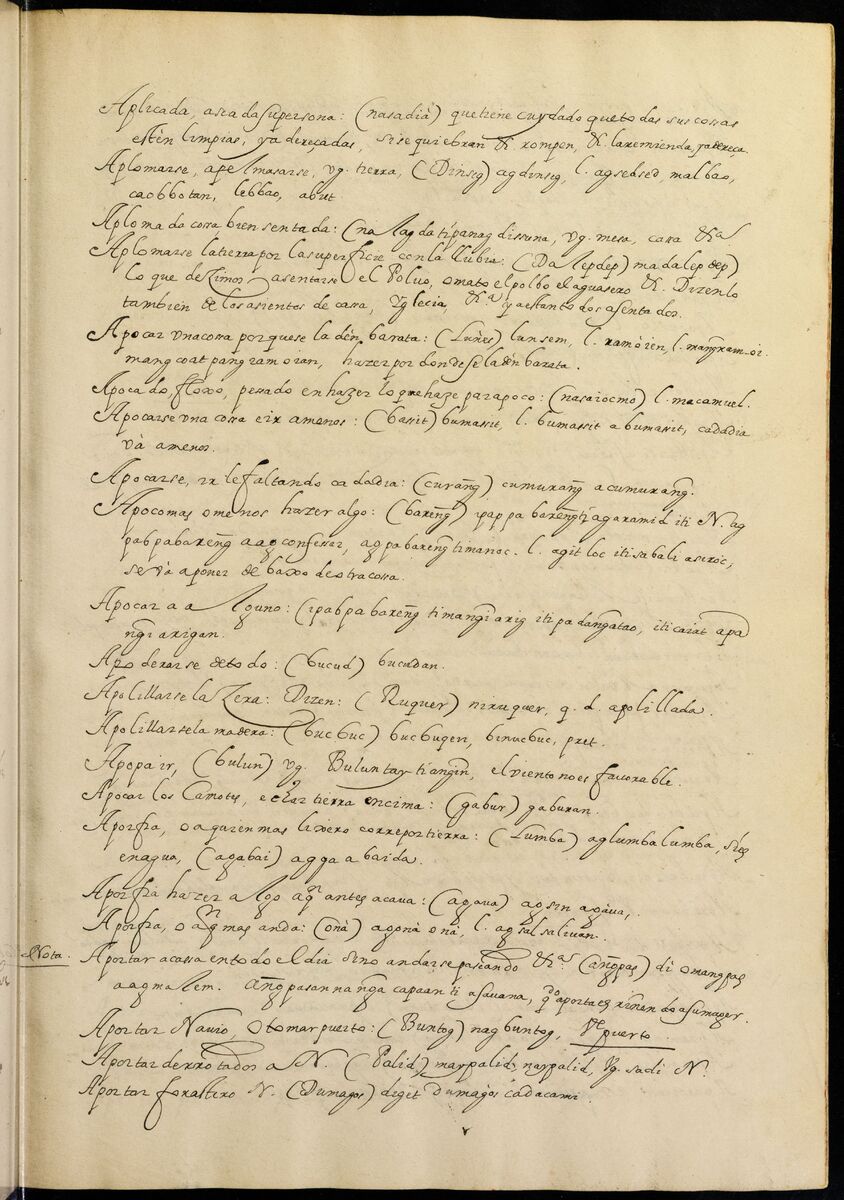 Aplicada, aseada su persona: (nasadiâ) que tiene cuydado que todas sus cossas
estèn limpias, y adereçadas, si se quiebran &. rompen, &. la remienda, y adereça
Aplomarse, apelmasarse, vg. tierra, (Dinseg) agdinseg, l. agsebsed, malbao,
caobbotan, lebbao, abut.
Aplomada cosa bien sentada: (nalagda tipanagdissuna, vg. mesa, casa &ª
Aplomarse la tierra por la superficie con la llubia: (Dalepdep) madalepdep)
lo que dezimos asentarse el Poluo, o mato el polbo el aguasero &. Dizenlo
tambien de los asientos de casa, Yglecia &ª y aestan todos asentados.
Apocar vna cosa porque se la dèn barata: (Lunès) lunsem, l. ramòien, l.
mangcoat pangramoian, hazer por donde se la dèn barata.
Apocado, floxo, pesado en hazer lo que haze para poco: (nasaiocmo) l. macamuel.
Apocarse vna cosa e ir a menos: (bassit) bumassit, l. bumassit a bumasit, cadadia
và a menos.
Apocarse, ir le faltando cadadia: (curang̃) cumurang̃ a cumurang̃.
Apocomas o menos hazer algo: (bareng̃) ipappa bareng̃ti agaramid iti N. ag
pabpabareng̃ a ag confessar, agpabareng̃ timanoc. l. agitloc iti sabali asiroc,
se và a poner de baxo de otra cossa.
Apocar a alguno: (ipabpabareng̃ timang̃i arig iti padang̃atao, iti caiat apa
ng̃i arigan.
Apoderarse de todo: (bucud) bucudan.
Apolillarse la Zera: Dizen: (Ruquer) niruquer, q. d. apolillada.
Apolillarse la madera: (bucbuc) bucbuqen, binucbuc, pret.
Apopair, (bulun) vg. Buluntay tiang̃in, el viento no es favorable.
Apocar los Camotes, echar tierra encima: (gabur) gaburan.
Aporfia, o a quien mas lixero corre por tierra: (Lumba) aglumba lumba, si es
en agua, (agabai) agga abaida.
Aporfia hazer algo aqⁿ antes acava: (agava) agsin agàva,
Aporfia, o aqⁿ mas anda: (onà) agonà onà, l. agsalsalivan.
Nota. Aportar a cassa en todo el dia sino andarse paseando &ª (ang̃pas) di omang̃pas
a agmalem. Ang̃pasan na ng̃a capaan ti asavana, qdo aporta es riñendo a su muger.
Aportar Navio, o tomar puerto: (Buntog) nagbuntog, Vᵉ puerto.
Aportar derrotados a N. (Palid) maypalid, naypalid, Vg. sadi N.
Aportar forastero N. (Dumagos) digit dumagos cadacami.